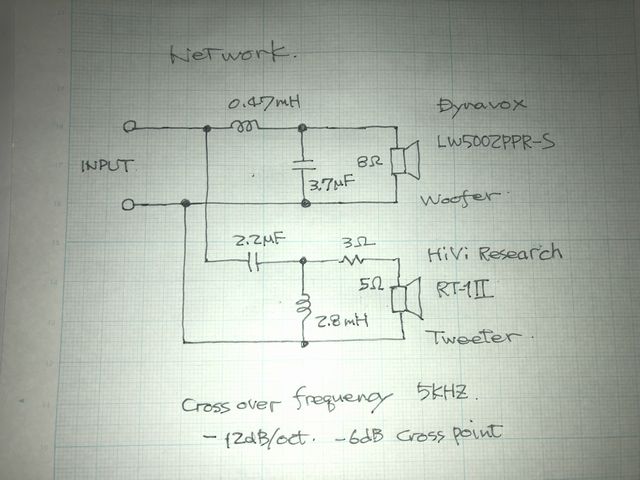 Network.
0.47mH
Dynavox
LW5002PPR-S
8Ω
INPUT
3.7μF
Woofer.
2.2μF
3Ω
HiVi Research
5Ω
RT-1II
2.8mH
Tweeter.
Cross over frequency 5KHZ.
-12dB/oct. -6dB Cross point